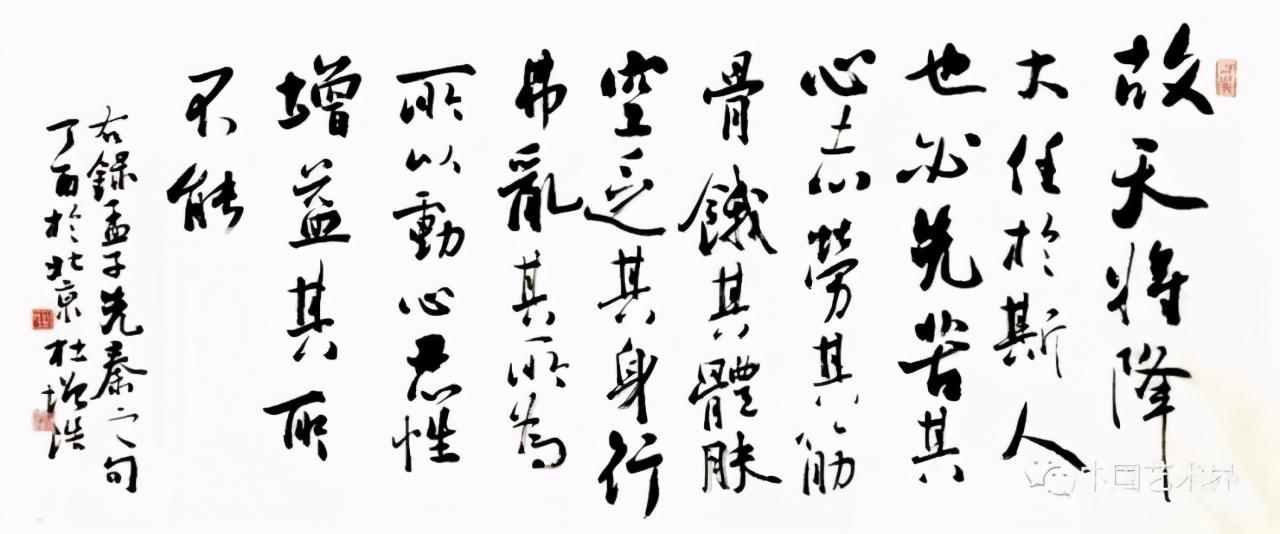 故天将降
大任於斯人
也必先苦其
心志勞其筋
骨餓其體膚
空乏其身行
弗亂其所為
所以動心忍性
增益其所
不能
右錄孟子先秦之句
丁酉於北京杜增浩
中国艺术界